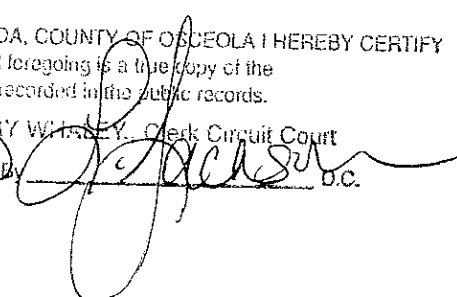 DA, COUNTY OF OSCEOLA I HEREBY CERTIFY
foregoing is a true copy of the
recorded in the public records.
Y WHALEY, Clerk Circuit Court
By Jackson D.C.